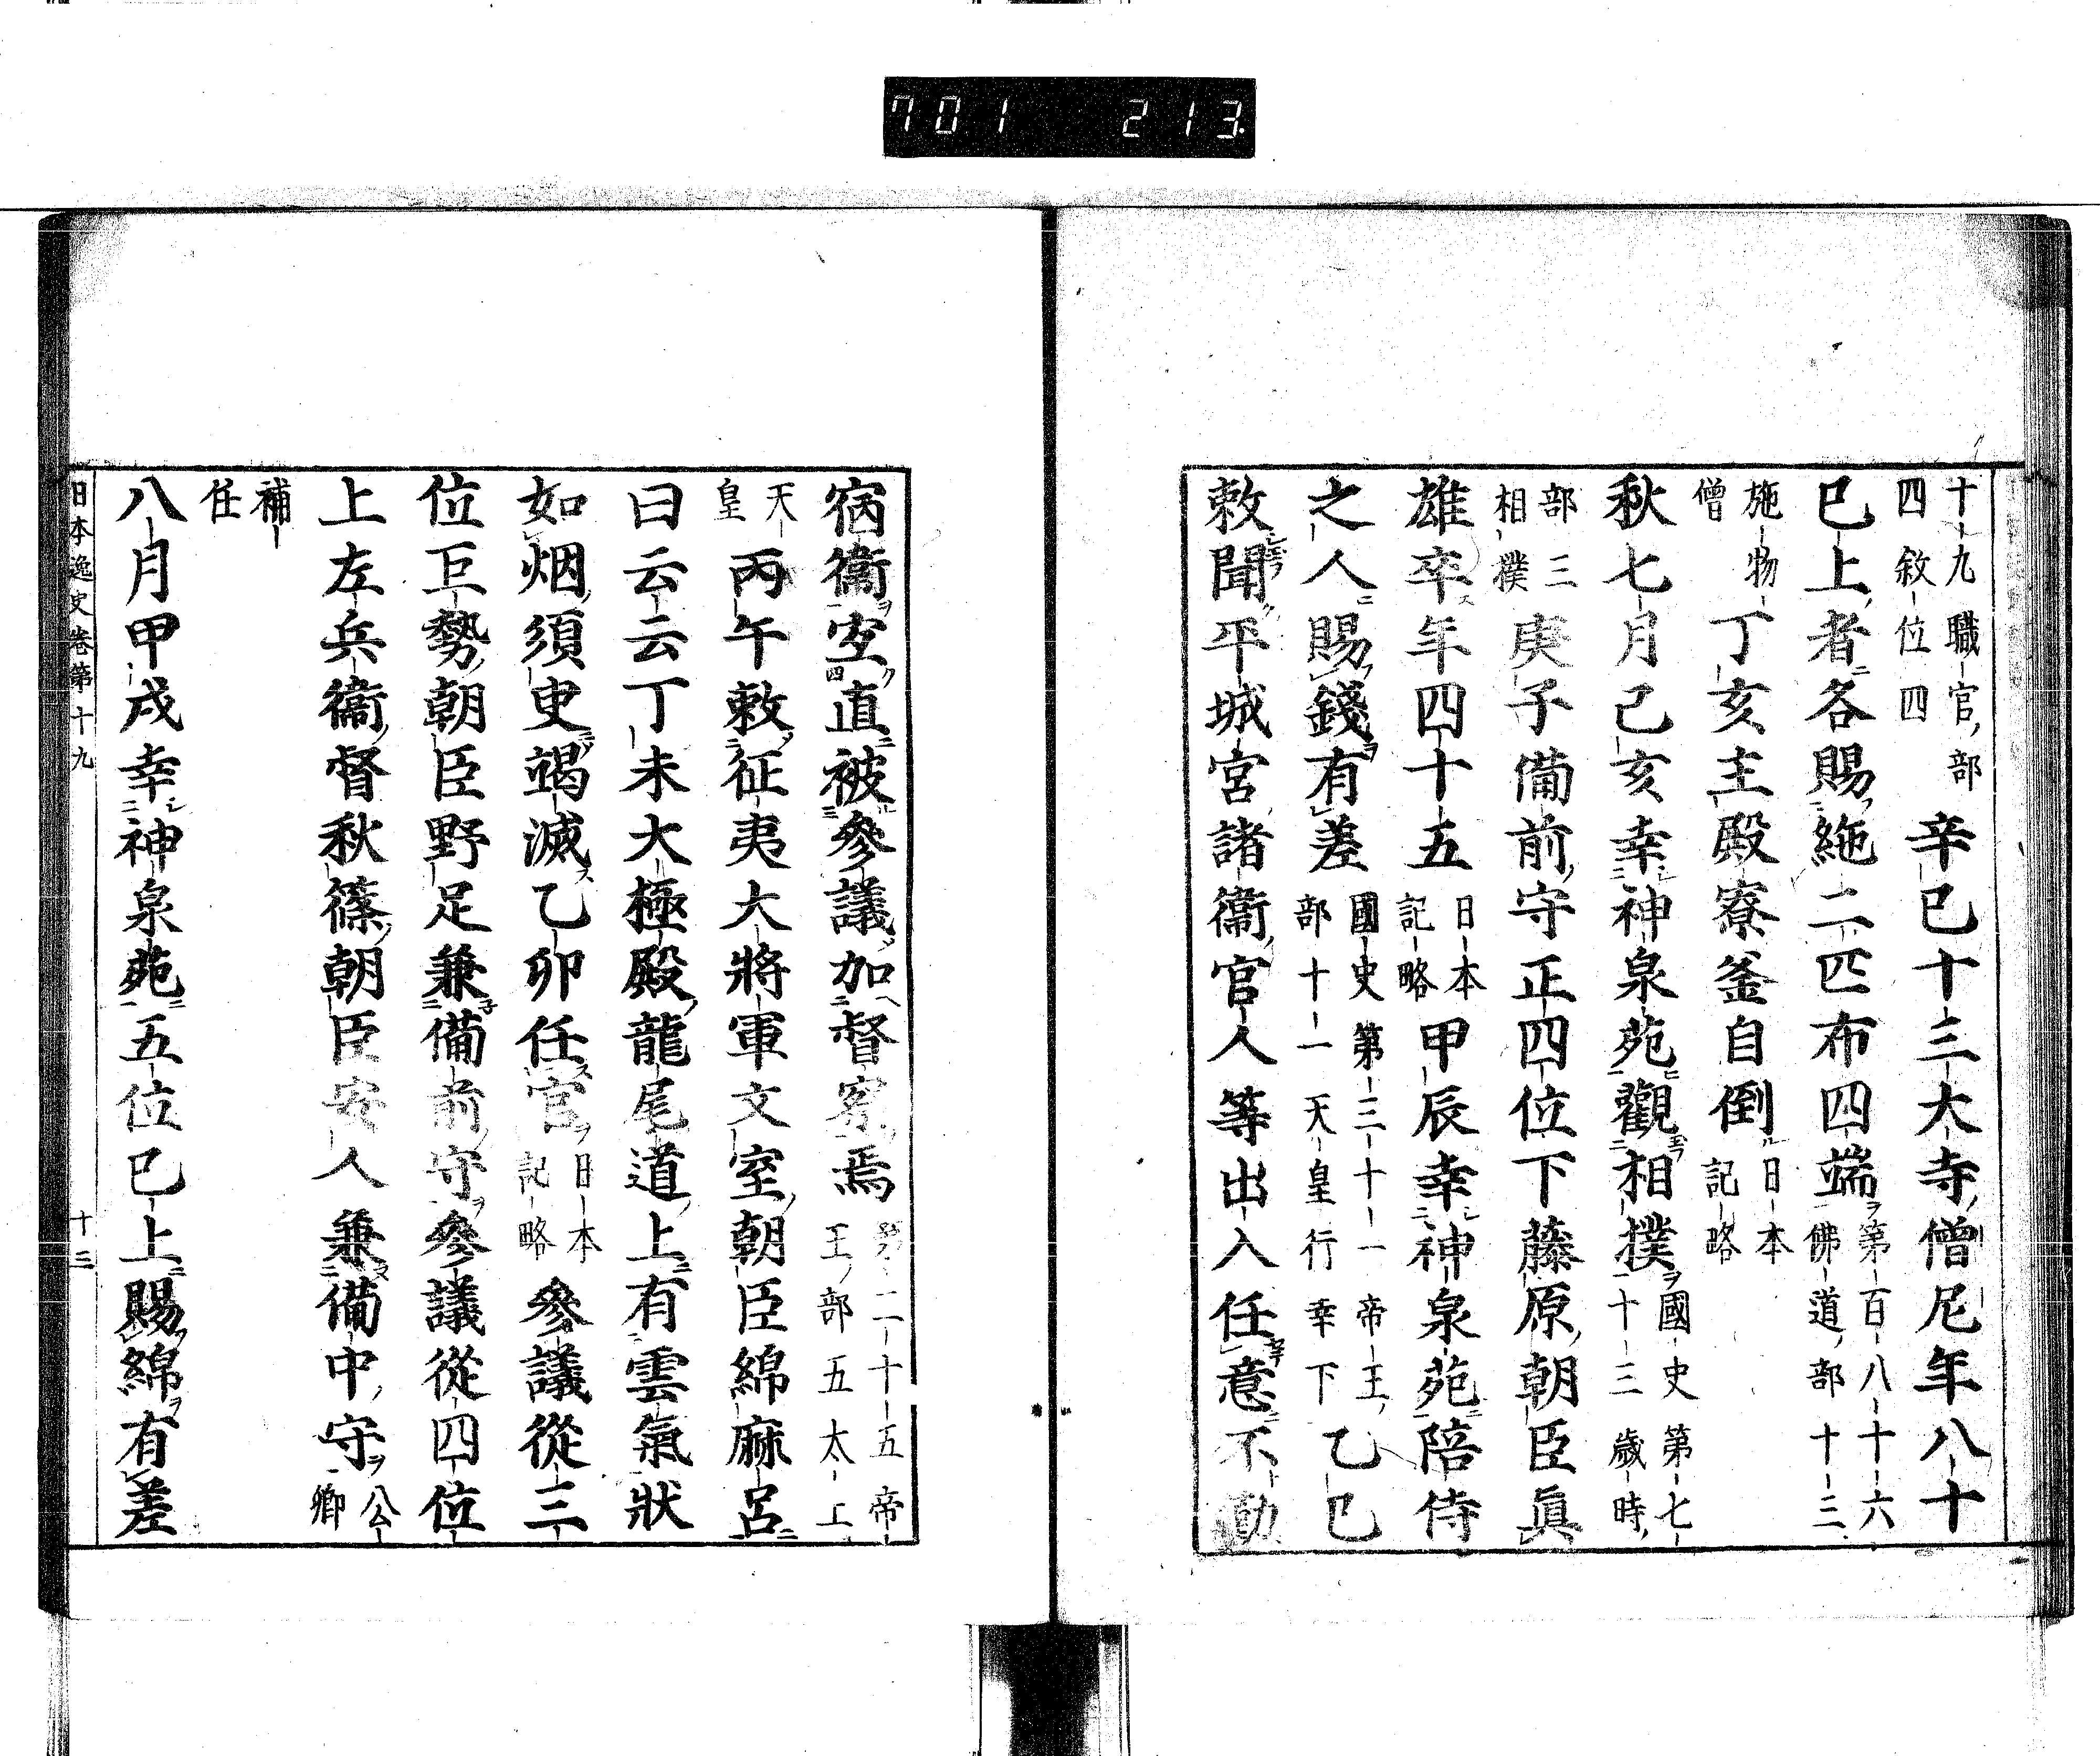 701 213
十九職官部
四敘位四
辛巳十三大寺僧尼年八十
巳上者各賜絁二匹布四端
第百八十六
佛道部十三
施物
僧
丁亥主殿寮釜自倒
日本
記略
秋七月己亥幸神泉苑觀相撲
國史第七
十三歲時
部三
相撲
庚子備前守正四位下藤原朝臣眞
雄卒年四十五
日本
記略
甲辰幸神泉苑陪侍
之人賜錢有差
國史第三十一帝王
部十一天皇行幸下
乙巳
敕聞平城宮諸衞官人等出入任意不勤
宿衞宜直被參議加督察焉
第二十五帝
王部五太上
天
皇
丙午敕征夷大將軍文室朝臣綿麻呂
曰云云丁未大極殿龍尾道上有雲氣狀
如烟須叓竭滅乙卯任官
日本
記略
參議從三
位巨勢朝臣野足兼備前守參議從四位
上左兵衞督秋篠朝臣安人兼備中守
公
卿
補
任
八月甲戌幸神泉苑五位巳上賜綿有差
日本逸史卷第十九 十三